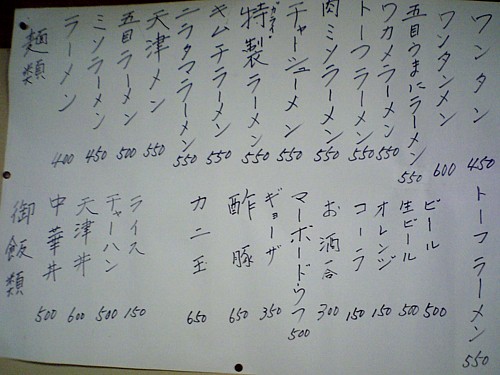 麺類
ラーメン 400
ミソラーメン 450
五目ラーメン 500
天津メン 550
ニラタマラーメン 550
キムチラーメン 550
特製ラーメン 550
チャーシューメン 550
肉ミソラーメン 550
トーフラーメン 550
ワカメラーメン 550
五目うまにラーメン 550
ワンタンメン 600
ワンタン 450
御飯類
中華丼 500
天津丼 600
チャーハン 500
ライス 150
カニ玉 650
酢豚 650
ギョーザ 350
マーボードウフ 500
お酒一合 300
コーラ 150
オレンジ 150
生ビール 500
ビール 500
トーフラーメン 550